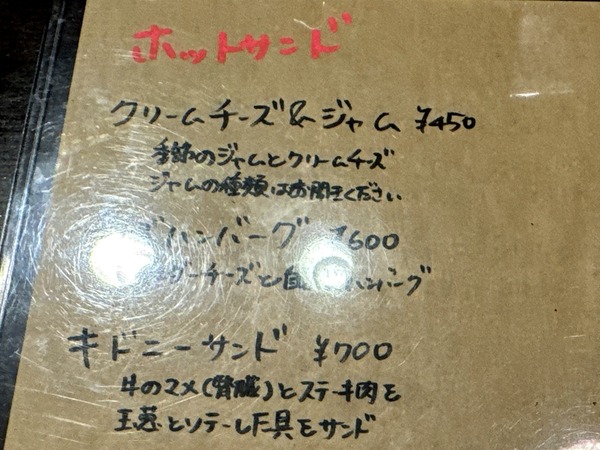 ホットサンド
クリームチーズ&ジャム ¥450
季節のジャムとクリームチーズ
ジャムの種類はお聞きください
ハンバーグ ¥600
ダーチーズと自 ハンバーグ
キドニーサンド ¥700
牛のマメ(腎臓)とステーキ肉を
玉葱とソテーした具をサンド